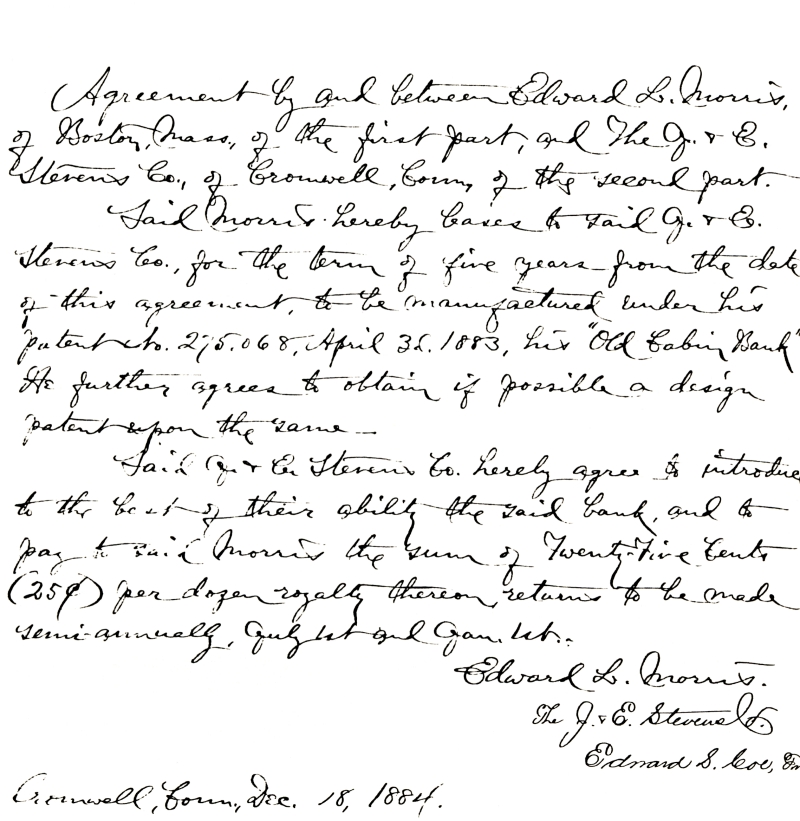 Agreement by and between Edward L. Morris,
of Boston, Mass., of the first part, and The J. & E.
Stevens Co., of Cromwell, Conn, of the second part.
Said Morris hereby leases to said J. & E.
Stevens Co., for the term of five years from the date
of this agreement, to be manufactured under his
patent No. 275.068, April 3d. 1883, his "Old Cabin Bank"
He further agrees to obtain if possible a design
patent upon the same —
Said J. & E. Stevens Co. hereby agree to introduce
to the best of their ability the said bank, and to
pay to said Morris the sum of Twenty-Five Cents
(25¢) per dozen royalty thereon, returns to be made
semi-annually, July 1st and Jan. 1st.
Edward L. Morris.
The J. & E. Stevens Co.
Edward S. Coe,
Cromwell, Conn., Dec. 18, 1884.